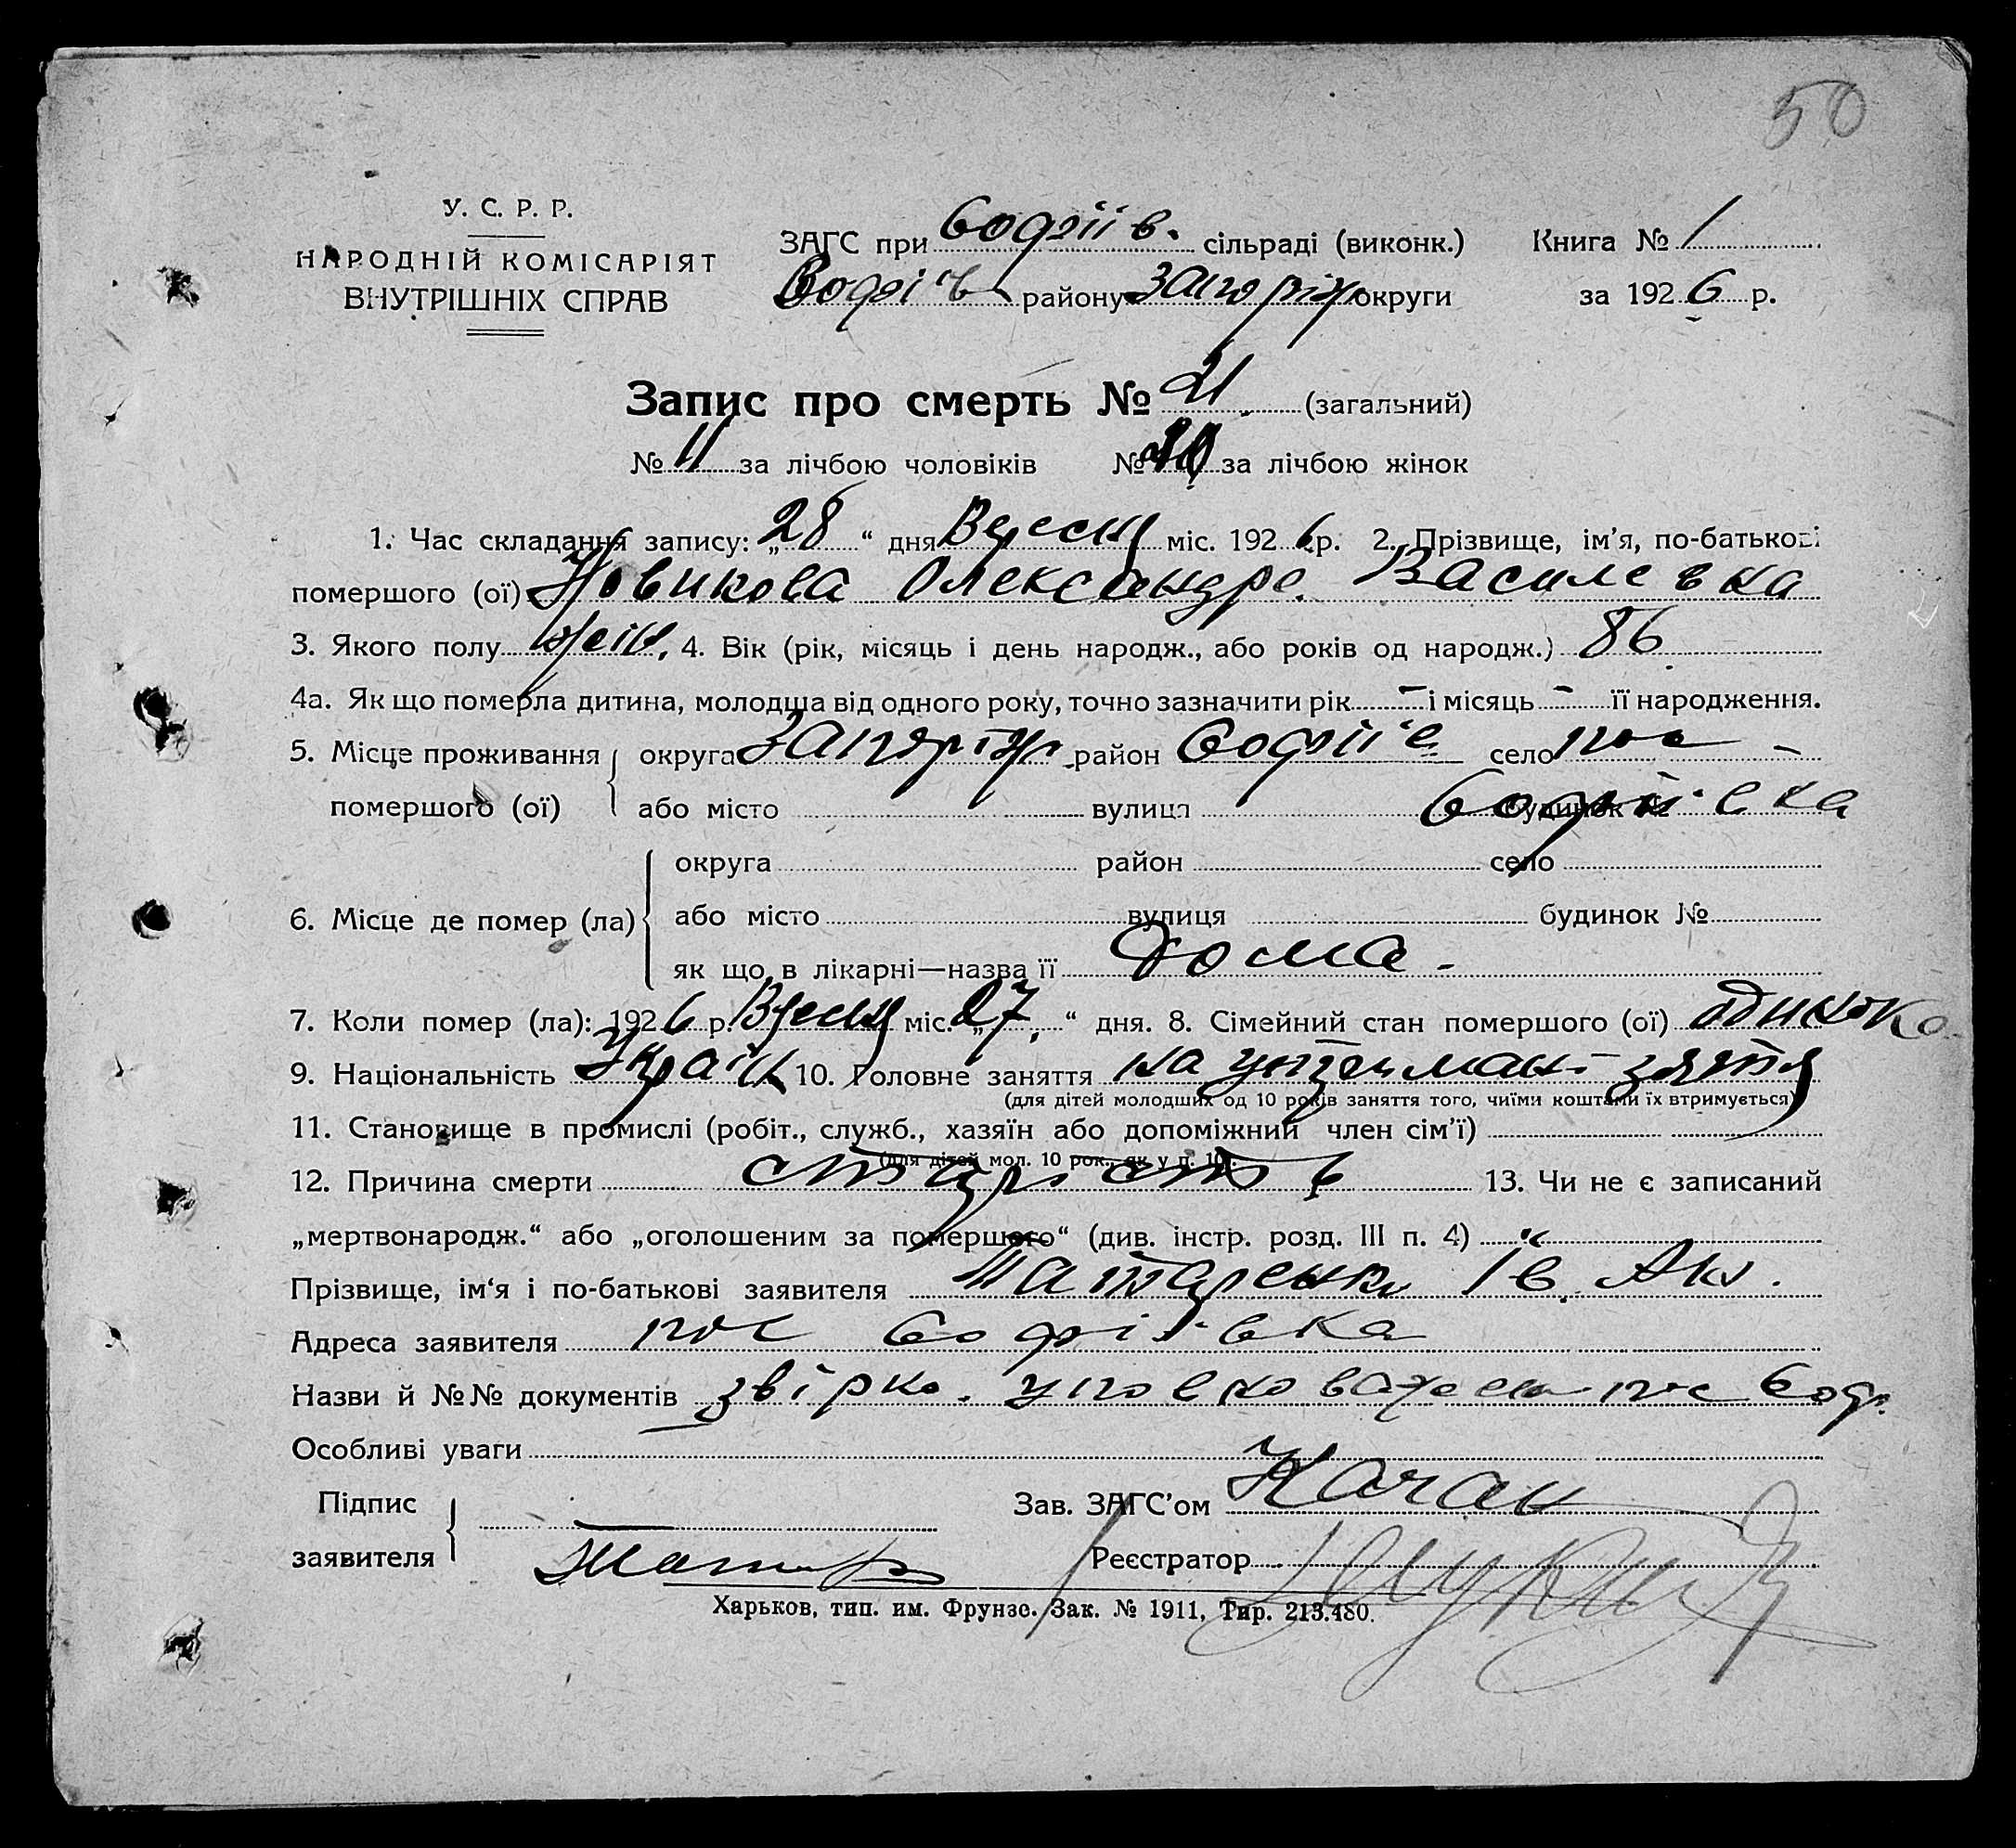 50
У. С. Р. Р.
НАРОДНІЙ КОМІСАРІЯТ
ВНУТРІШНІХ СПРАВ
ЗАГС при Софіїв. сільраді (виконк.) Книга № 1
Софіїв району Запоріж округи за 1926 р.
Запис про смерть № 21. (загальний)
№ 11 за лічбою чоловіків № за лічбою жінок
1. Час складання запису: „28“ дня Вересня міс. 1926 р. 2. Прізвище, ім’я, по-батькові
помершого (ої) Новикова Олександра Василевна
3. Якого полу жін. 4. Вік (рік, місяць і день народж., або років од народж.) 86
4а. Як що померла дитина, молодша від одного року, точно зазначити рік – і місяць – її народження.
5. Місце проживання округа Запоріж район Софіїв село пос –
помершого (ої) або місто вулиця будинок № Софіївка
округа район село
6. Місце де помер (ла) або місто вулиця будинок №
як що в лікарні—назва її Дома -
7. Коли помер (ла): 1926 р. Вересня міс. „27“ дня. 8. Сімейний стан помершого (ої) одинока
9. Національність Україн 10. Головне заняття на утриман зятя
(для дітей молодших од 10 років заняття того, чиїми коштами їх втримується)
11. Становище в промислі (робіт., служб., хазяїн або допоміжний член сім’ї)
(для дітей мол. 10 рок., як у п. 10).
12. Причина смерти старость 13. Чи не є записаний
„мертвонародж.“ або „оголошеним за помершого“ (див. інстр. розд. III п. 4)
Прізвище, ім‘я і по-батькові заявителя Татаренко Ів. Ак.
Адреса заявителя пос Софіївка
Назви й №№ документів звірко. уповноважена пос Соф.
Особливі уваги
Підпис Зав. ЗАГС’ом Качан
заявителя Татар Реєстратор
Харьков, тип. им. Фрунзе. Зак. № 1911, Тир. 213.480.